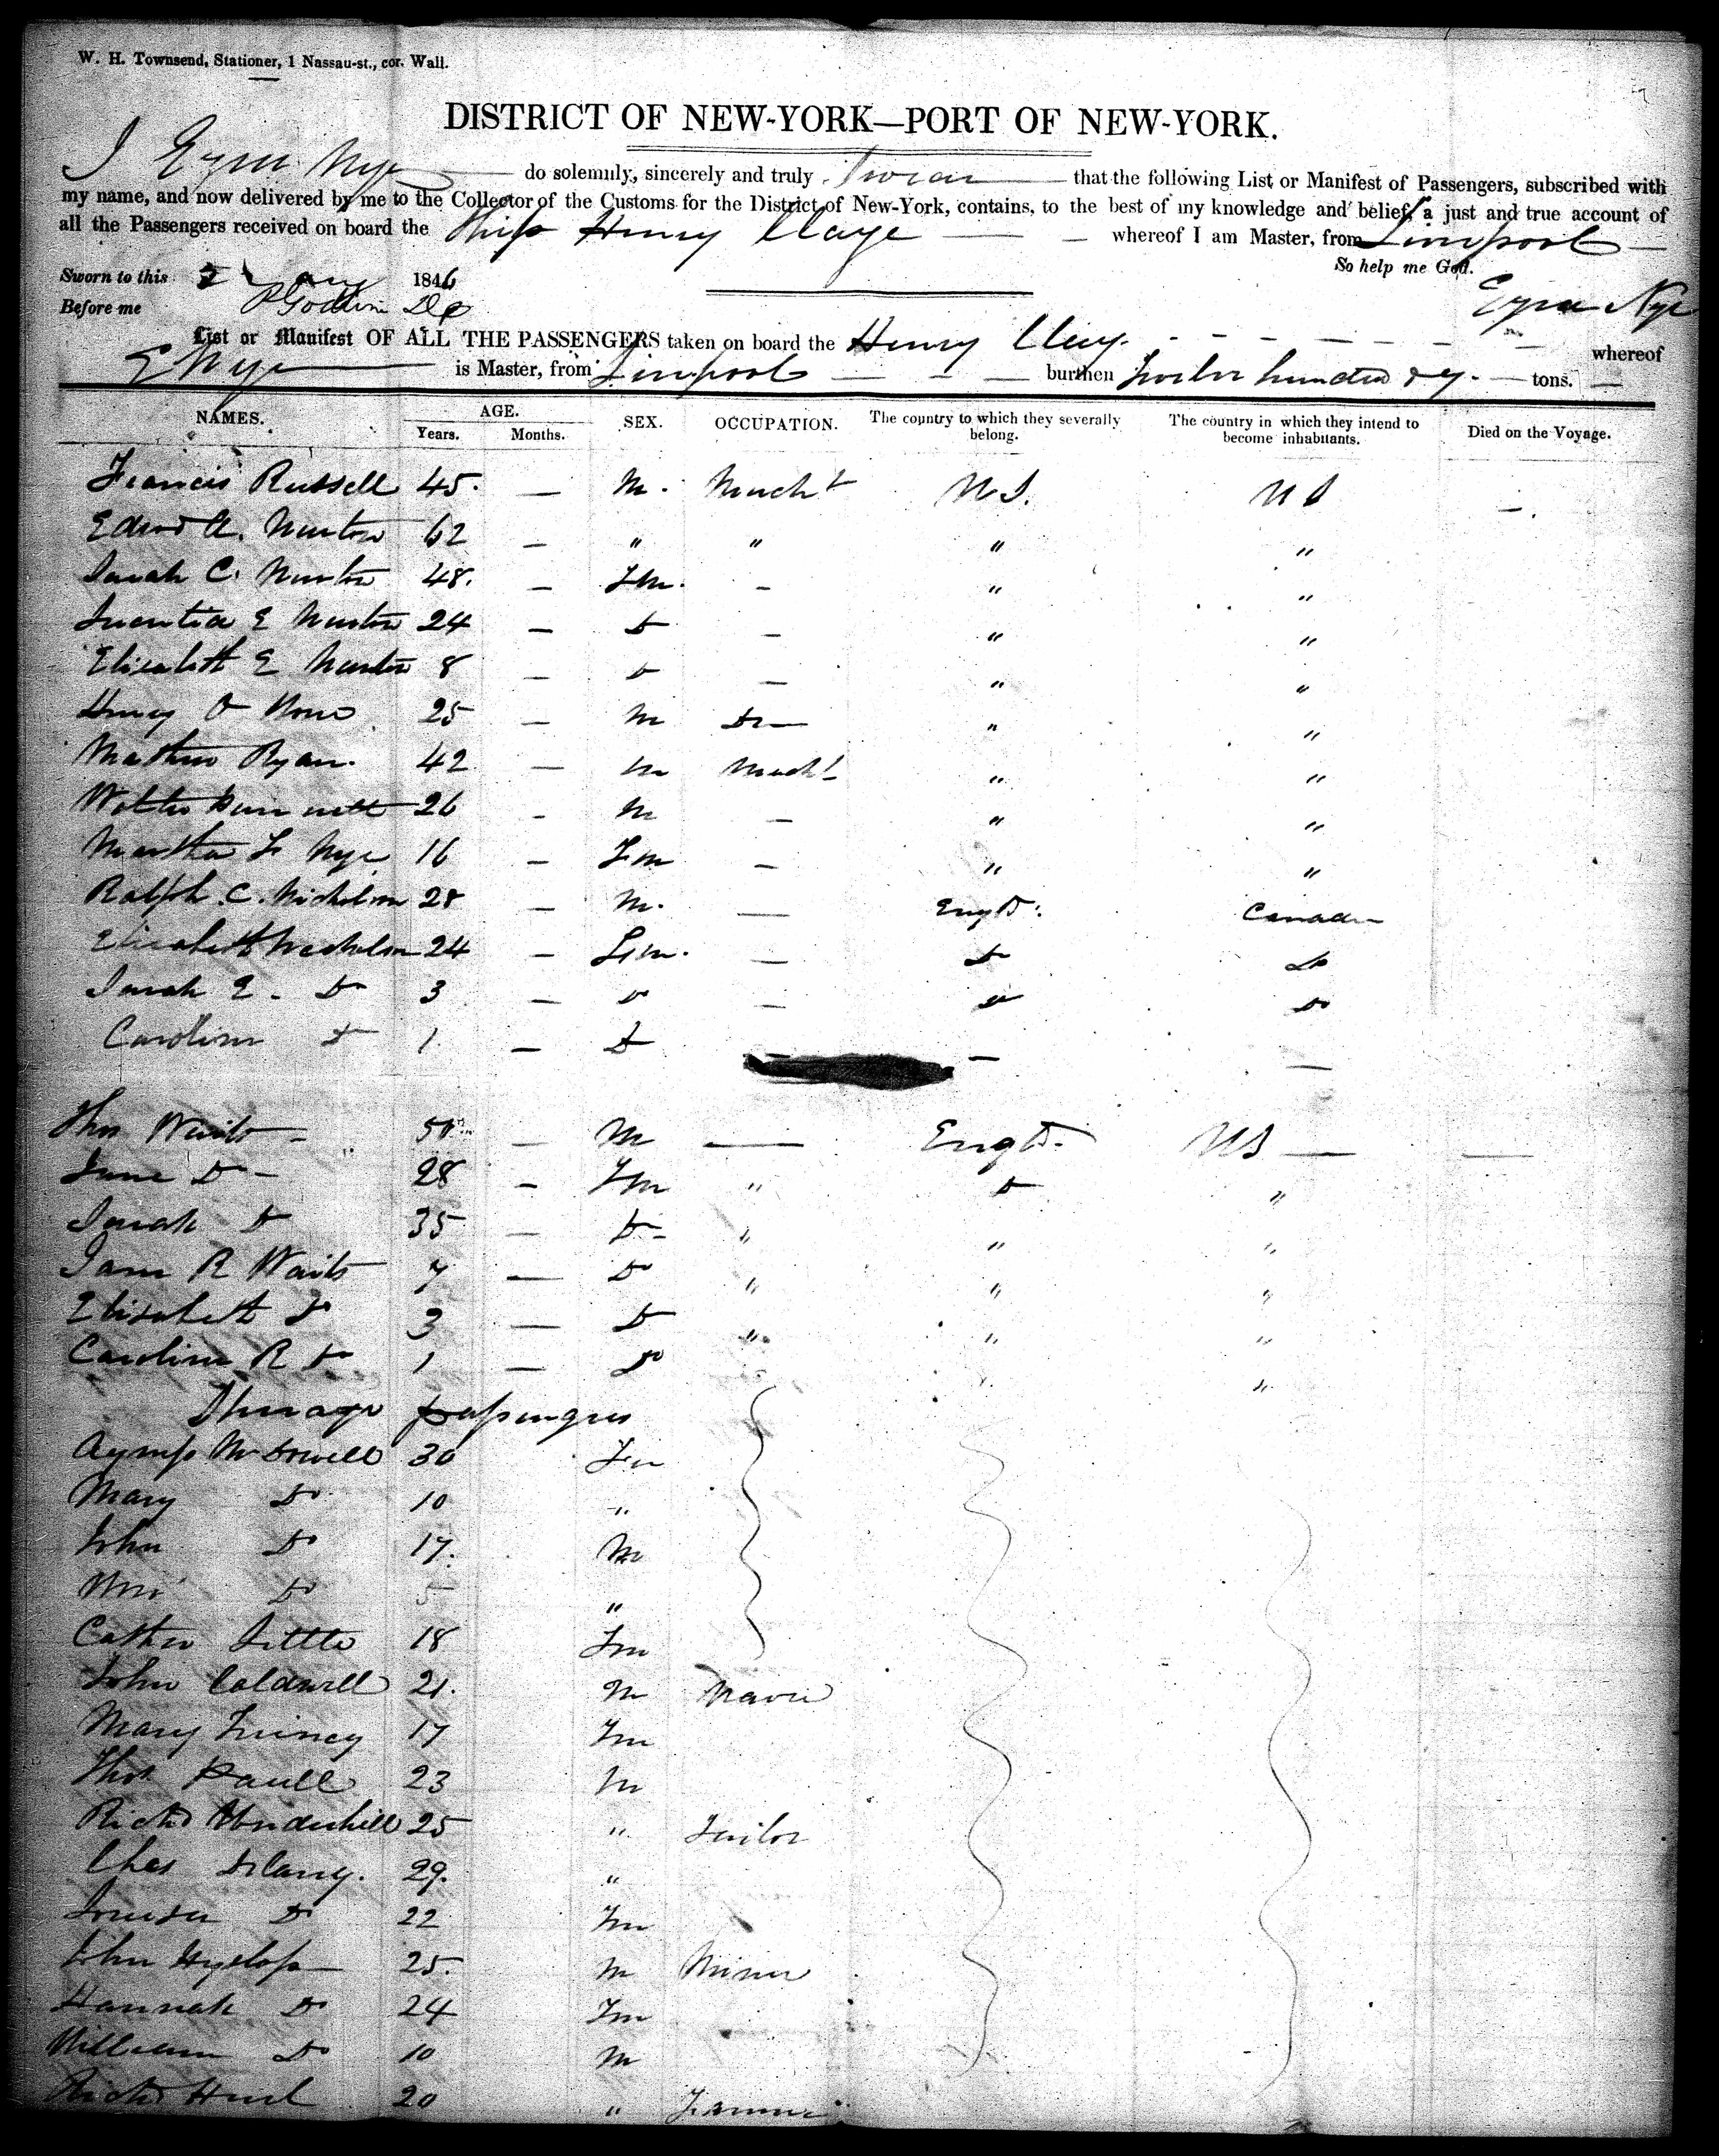 W. H. Townsend, Stationer, 1 Nassau-st., cor. Wall.
DISTRICT OF NEW-YORK—PORT OF NEW-YORK.
I Ezra Nye do solemnly, sincerely and truly swear that the following List or Manifest of Passengers, subscribed with
my name, and now delivered by me to the Collector of the Customs for the District of New-York, contains, to the best of my knowledge and belief, a just and true account of
all the Passengers received on board the Ship Henry Claye whereof I am Master, from Liverpool
So help me God.
Sworn to this 1846
Before me Ezra Nye
List or Manifest OF ALL THE PASSENGERS taken on board the Henry Clay. whereof
E Nye is Master, from Liverpool burthen Twelve hundred & 7. tons.
NAMES. AGE. SEX. OCCUPATION. The country to which they severally belong. The country in which they intend to become inhabitants. Died on the Voyage.
Years. Months.
Francis Russell 45. — M. Mercht U S. U S —.
Edwd A. Newton 62 — " " " "
Sarah C. Newton 48. — Fm. — " "
E Newton 24 — Do — " "
Elizabeth E Newton 8 — Do — " "
Henry 25 — M Dr — " "
Mathew Ryan. 42 — M Mercht " "
Walter 26 - M — " "
Martha F Nye 16 — Fm — " "
Ralph C. Nicholson 28 — M. — Engd. Canada
Elizabeth Nicholson 24 — Fm. — Do Do
Sarah E. Do 3 — Do — Do Do
Caroline Do 1 — Do — —
Thos Waits — M — Engd. US — —
Jane Do - 28 — Fm " Do "
Sarah Do 35 — Do - " " "
Jane R Waits 7 — Do " " "
Elizabeth Do 3 — Do " " "
Caroline R Do 1 — Do "
Steerage passengers
McDowell 30 Fm
Mary Do 10 "
John Do 17. M
Wm Do 5 "
Cathn Little 18 Fm
John Caldwell 21. M
Mary 17 Fm
Thos 23 M
Richd Underhill 25 " Tailor
Chas Delany. 29. "
Louisa Do 22 Fm
John Hyslop 25. M Miner
Hannah Do 24 Fm
William Do 10 M
Richd 20 " Farmer